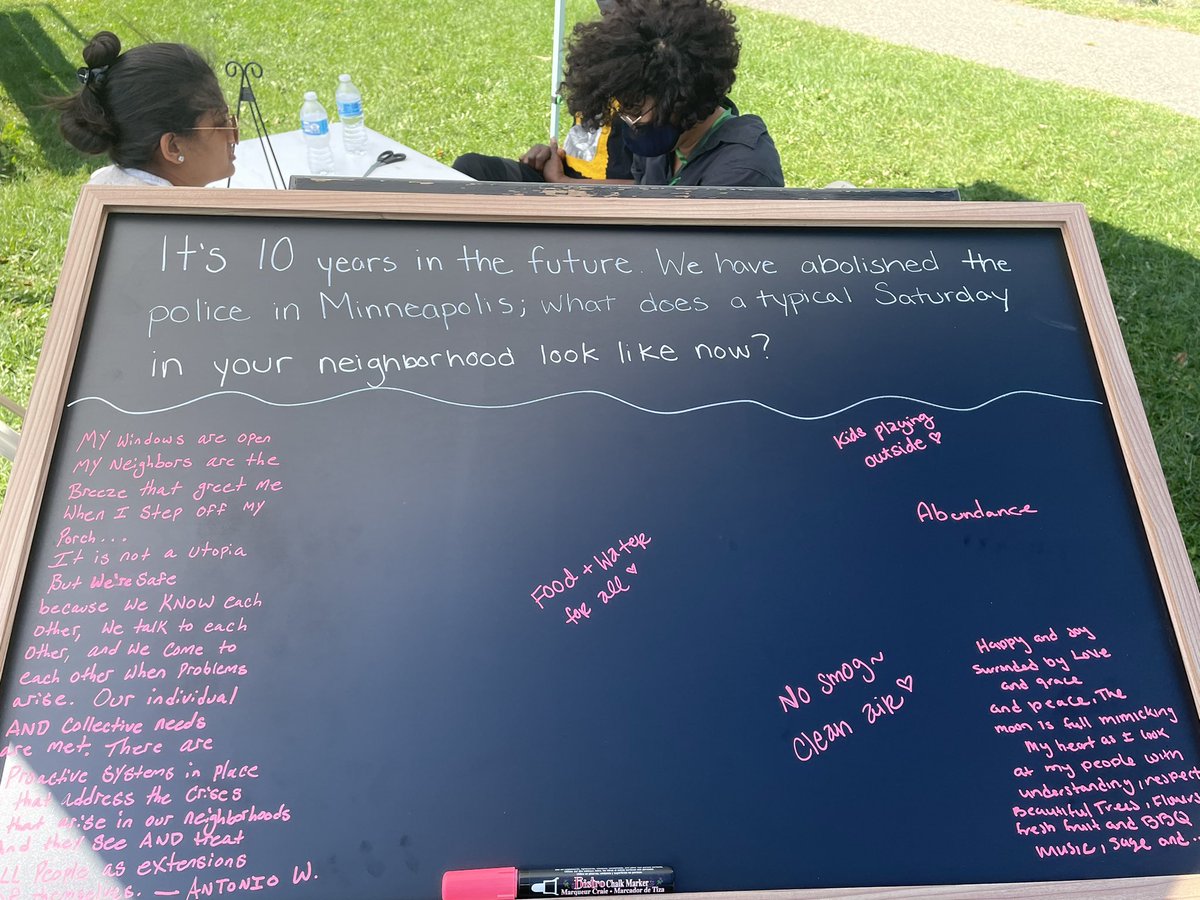 It's 10 years in the future. We have abolished the
police in Minneapolis; what does a typical Saturday
in your neighborhood look like now?
MY Windows are open
MY Neighbors are the
Breeze that greet Me
When I Step off MY
Porch...
It is not a utopia
But We're Safe
because we KNOW each
other, We talk to each
Other, and We Come to
each other when Problems
arise. Our individual
AND Collective needs
are met. There are
Proactive Systems in place
that address the Crises
that arise in our neighborhoods
And they See AND treat
ALL People as extensions
themselves. — ANTONIO W.
Food + Water
for all
Kids playing
outside
Abundance
No smog~
Clean air
Happy and Joy
Surronded by Love
and grace
and peace, The
moon is full mimicking
My heart as I look
at my people with
understanding, respect
Beautiful Trees, Flowers
fresh fruit and BBQ
Music, Sage and...
Bistro Chalk Marker
Marqueur Craie • Marcador de Tiza